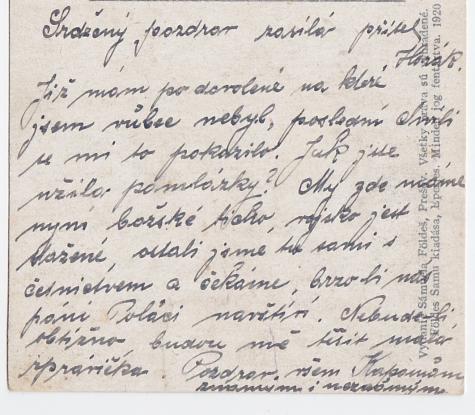 Srdečný pozdrav zasílá přítel
Horák.
Již mám po dovolené na které
jsem vůbec nebyl, poslední chvíli
se mi to pokazilo. Jak jste
užila pomlázky? My zde máme
nyní božské ticho, vojsko jest
stažené, ostali jsme tu sami s
četnictvem a čekáme, brzo-li nás
páni Poláci navštíví. Nebude-li
obtížno budou mě těšit malá
zprávička Pozdrav všem
známým i neznámým
Vydanie Sámuela Földes, Prešov. Všetky práva sú vyhradené.
Földes Samu kiadása, Eperjes. Minden jog fentartva. 1920